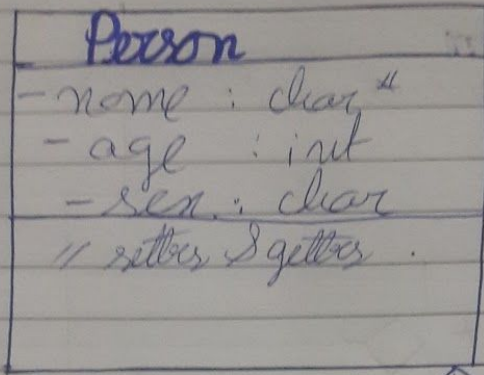 Person
- name : char *
- age : int
- sex : char
// setters & getters .